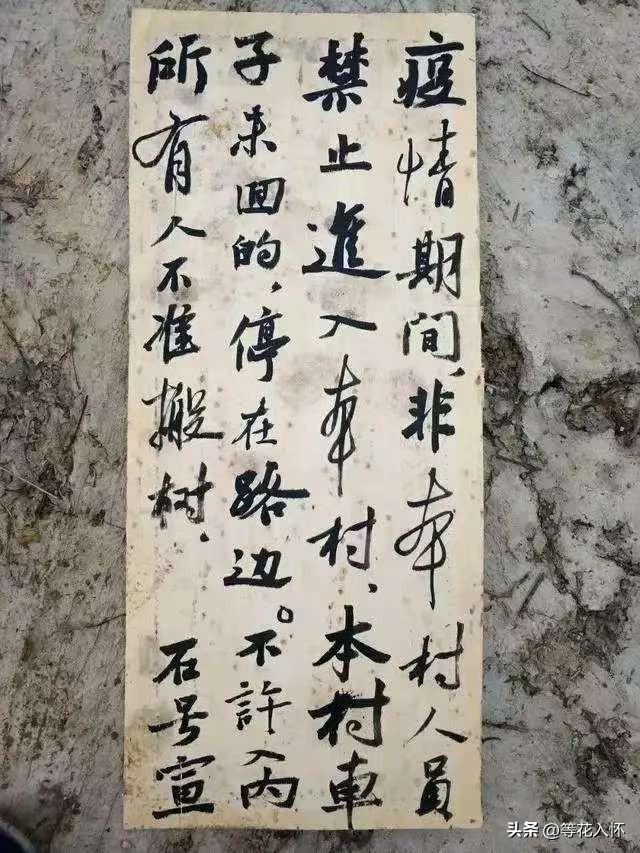 疫情期间、非本村人員
禁止進入本村、本村車
子来回的，停在路边。不許入内
所有人不准搬树．
石号宣
头条 @等花入怀